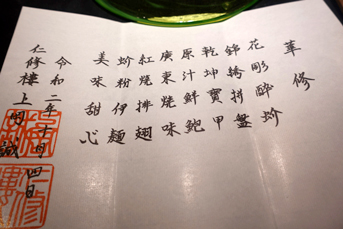 華修
花彫醉蚧
錦繡拼盤
乾坤寶甲
原汁鮮鮑
廣東燒味
紅燒排翅
蚧粉伊麵
美味甜心
令和二年十月四日
仁修樓 上岡誠